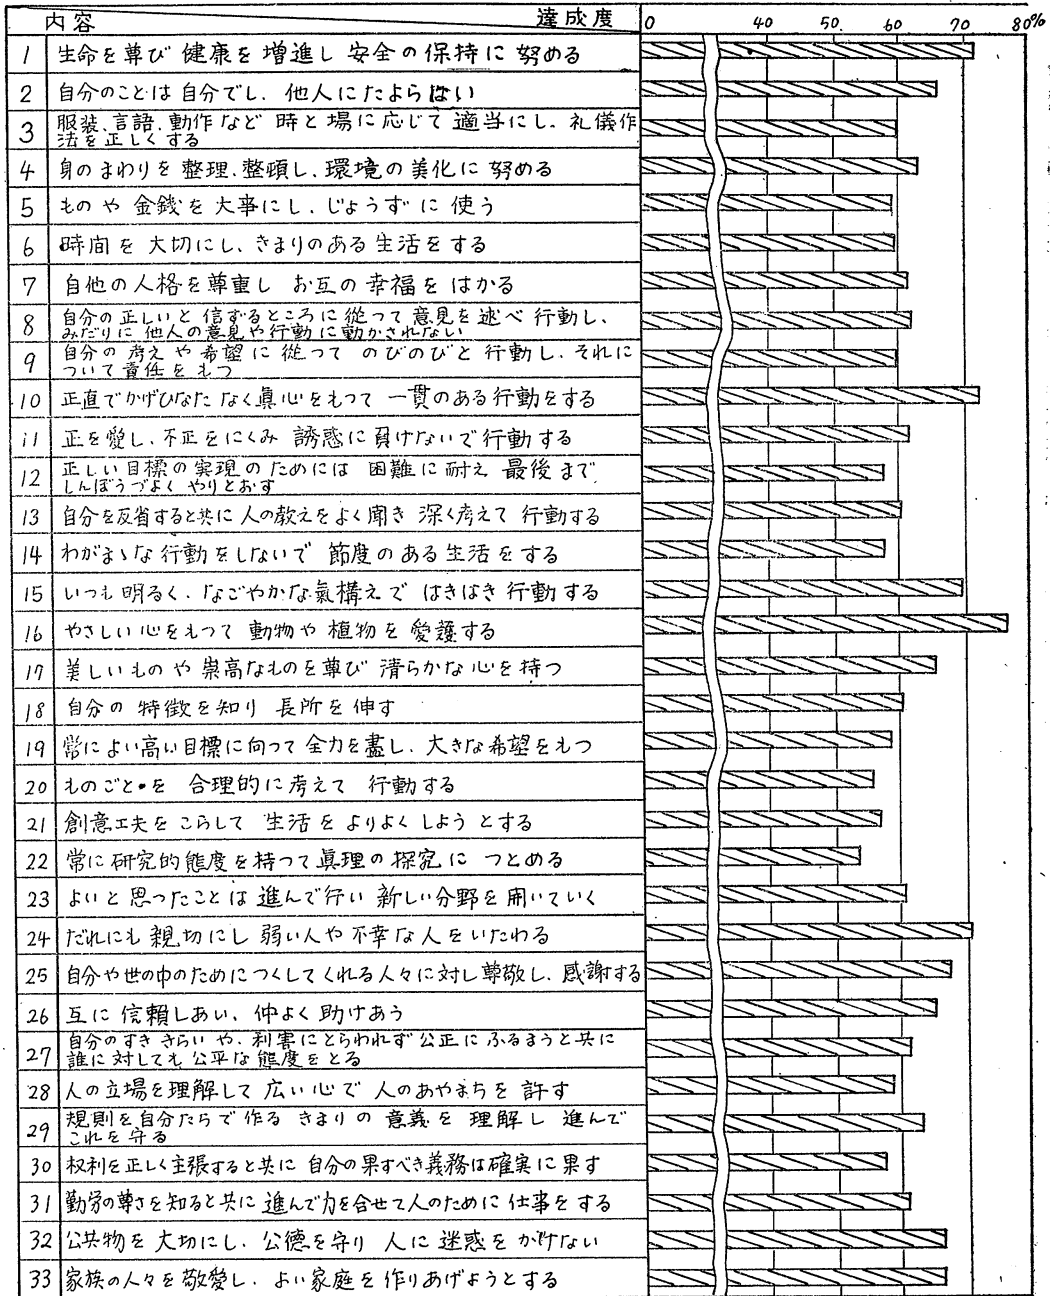 内容 達成度 0 40 50 60 70 80%
1 生命を尊び 健康を増進し 安全の保持に努める
2 自分のことは自分でし、他人にたよらない
3 服装、言語、動作など 時と場に応じて適当にし、礼儀作
法を正しくする
4 身のまわりを整理、整頓し、環境の美化に努める
5 ものや金銭を大事にし、じょうずに使う
6 時間を大切にし、きまりのある生活をする
7 自他の人格を尊重し お互の幸福をはかる
8 自分の正しいと信ずるところに従つて意見を述べ行動し、
みだりに他人の意見や行動に動かされない
9 自分の考えや希望に従つて のびのびと行動し、それに
ついて責任をもつ
10 正直でかげひなたなく眞心をもつて 一貫のある行動をする
11 正を愛し、不正をにくみ 誘惑に負けないで行動する
12 正しい目標の実現のためには 困難に耐え 最後まで
しんぼうづよく やりとおす
13 自分を反省すると共に人の教えをよく聞き 深く考えて行動する
14 わがまゝな行動をしないで 節度のある生活をする
15 いつも明るく、なごやかな氣構えで はきはき行動する
16 やさしい心をもつて 動物や植物を愛護する
17 美しいものや崇高なものを尊び 清らかな心を持つ
18 自分の特徴を知り 長所を伸す
19 常によい高い目標に向つて全力を盡し、大きな希望をもつ
20 ものごとを 合理的に考えて 行動する
21 創意工夫をこらして 生活をよりよくしようとする
22 常に研究的態度を持つて眞理の探究に つとめる
23 よいと思ったことは進んで行い 新しい分野を開いていく
24 だれにも親切にし 弱い人や不幸な人をいたわる
25 自分や世の中のためにつくしてくれる人々に対し尊敬し、感謝する
26 互に信頼しあい、仲よく助けあう
27 自分のすききらいや、利害にとらわれず公正にふるまうと共に
誰に対しても公平な態度をとる
28 人の立場を理解して 広い心で 人のあやまちを許す
29 規則を自分たちで作る きまりの意義を理解し 進んで
これを守る
30 权利を正しく主張すると共に 自分の果すべき義務は確実に果す
31 勤労の尊さを知ると共に 進んで力を合せて人のために仕事をする
32 公共物を大切にし、公徳を守り 人に迷惑をかけない
33 家族の人々を敬愛し、よい家庭を作りあげようとする